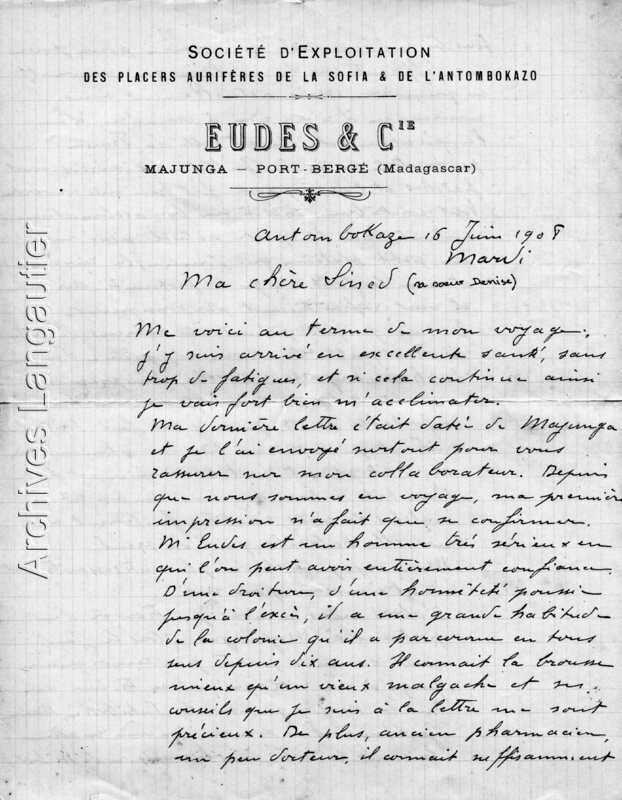 SOCIÉTÉ D'EXPLOITATION
DES PLACERS AURIFÈRES DE LA SOFIA & DE L'ANTOMBOKAZO
EUDES & CIE
MAJUNGA — PORT-BERGÉ (Madagascar)
Antombokazo 16 Juin 1908
Mardi
Ma chère Sined (sa soeur Denise)
Me voici au terme de mon voyage;
j'y suis arrivé en excellente santé, sans
trop de fatigues, et si cela continue ainsi
je vais fort bien m'acclimater.
Ma dernière lettre était datée de Majunga
et je l'ai envoyé surtout pour vous
rassurer sur mon collaborateur. Depuis
que nous sommes en voyage, ma première
impression n'a fait que se confirmer.
Mr Eudes est un homme très sérieux en
qui l'on peut avoir entièrement confiance.
D'une droiture, d'une honnêteté poussée
jusqu'à l'excès, il a une grande habitude
de la colonie qu'il a parcourue en tous
sens depuis dix ans. Il connait la brousse
mieux qu'un vieux malgache et ses
conseils que je suis à la lettre me sont
précieux. De plus, ancien pharmacien,
un peu docteur, il connait suffisamment
Archives Langautier